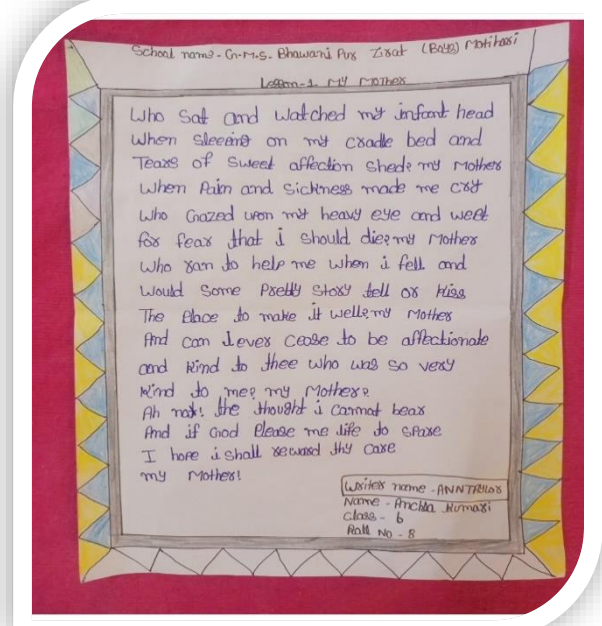 School name - G.M.S. Bhawani Pur Zirat (Boys) Motihari
Lesson-1 My Mother
Who Sat and Watched my infant head
When Sleeeing on my cradle bed and
Tears of Sweet affection Shed? my Mother
When Pain and Sickness made me cry
Who Gazed upon my heavy eye and weet
for fear that i should die? my Mother
Who ran to help me when i fell and
Would Some Pretty Story tell or Kiss
The Place to make it well? my Mother
And can I ever cease to be affectionate
and Kind to thee who was so very
Kind to me? my Mother?
Ah nay! the thought i cannot bear
And if God Please me life to Spare
I hope i shall reward thy care
my Mother!
Writer name - ANNTAYLOR
Name - Anchla Kumari
Class - 6
Roll No - 8